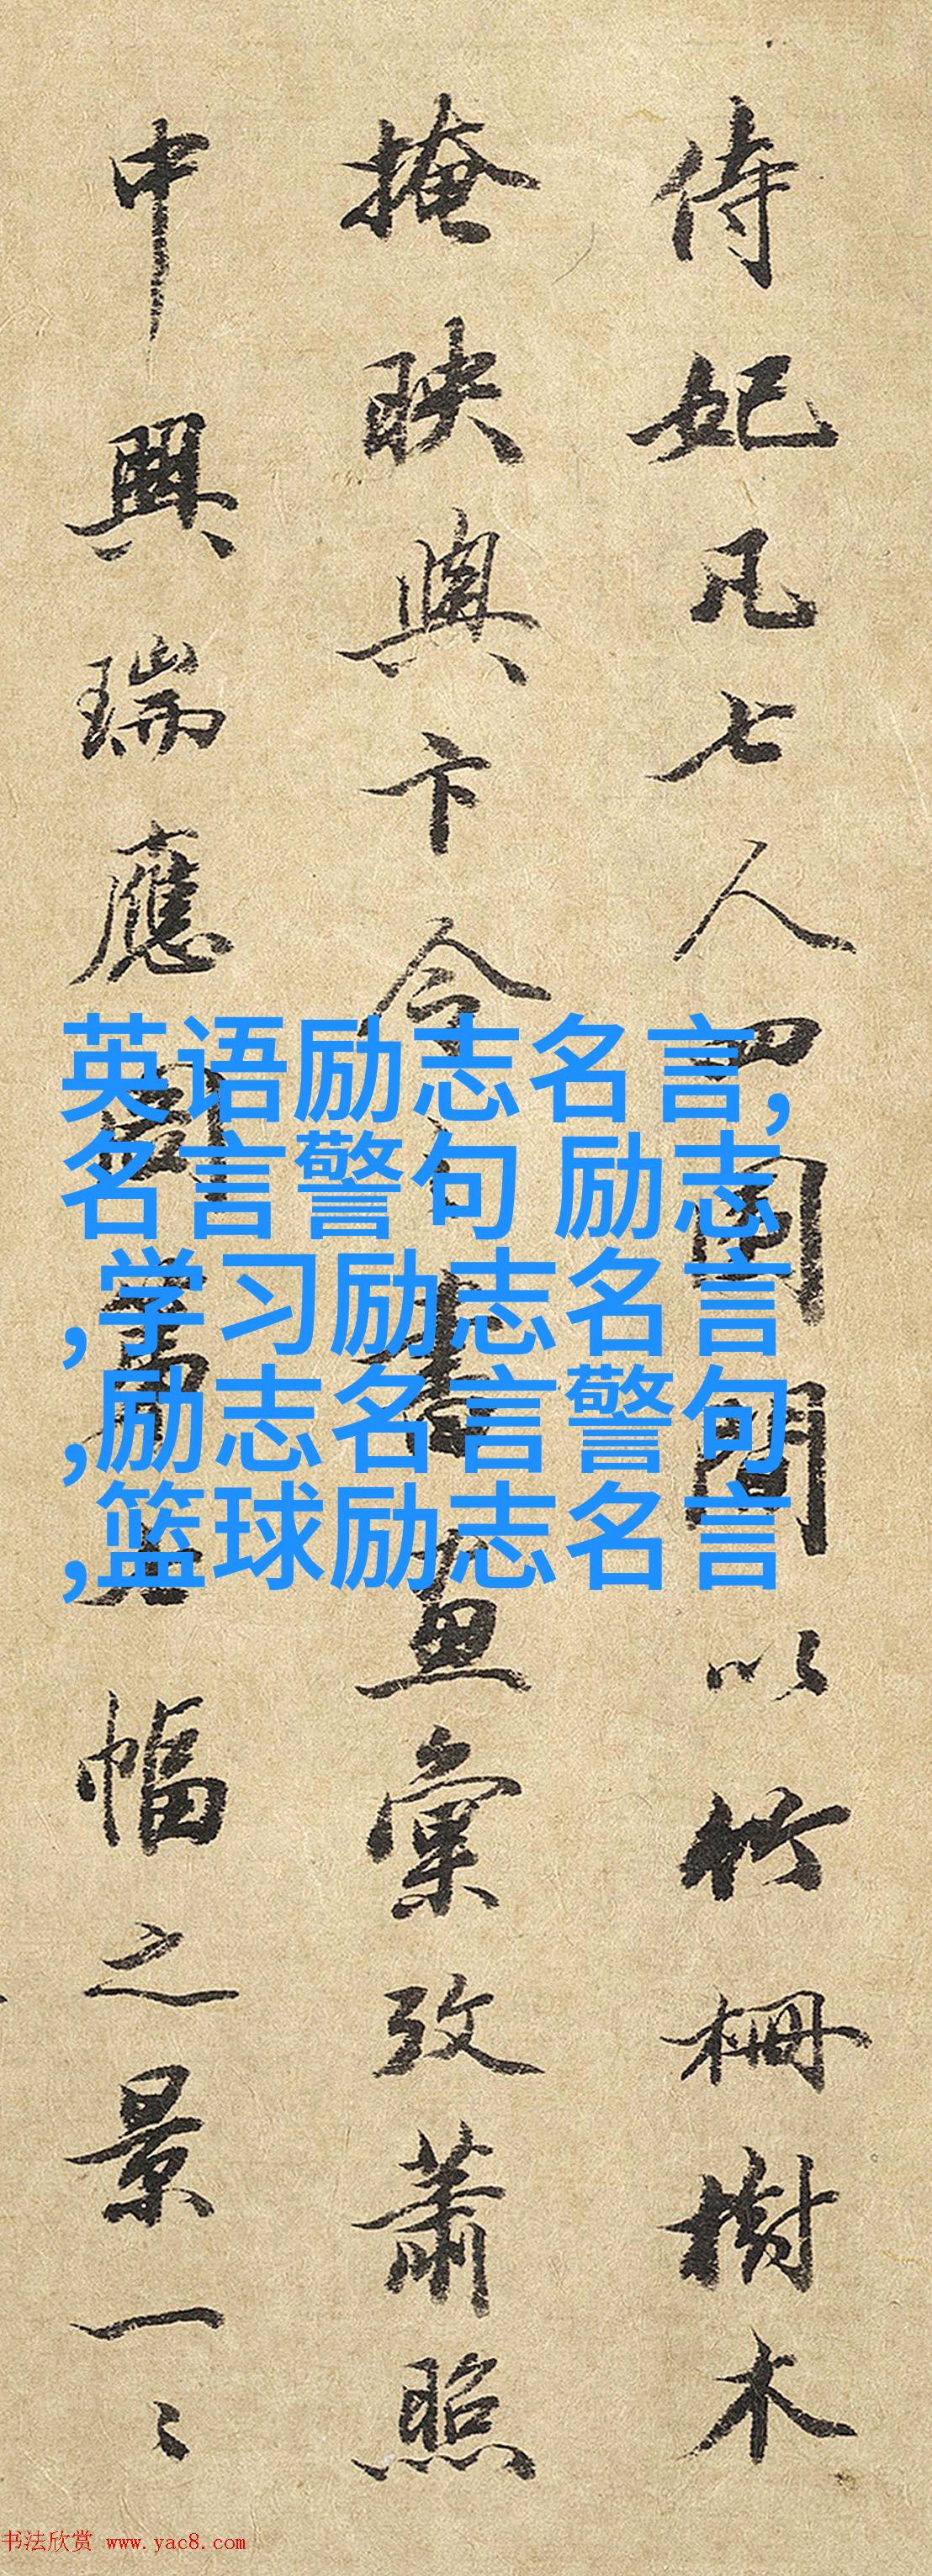 侍妃凡七人四周間以竹柵樹木
掩映與卞令之書畫彙攷蕭照
中興瑞應圖第五幅之景一一
英语励志名言,
名言警句 励志
,学习励志名言
,励志名言警句
,篮球励志名言
书法欣赏 www.yac8.com